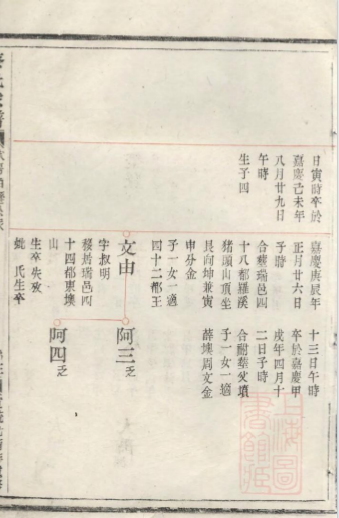 日寅時卒於
嘉慶己未年
八月廿九日
午時
生子四
嘉慶庚辰年
正月廿六日
子時
合葬瑞邑四
十八都羅溪
猪頭山頂坐
艮向坤兼寅
申分金
子一女一適
四十二都王
文由
字叔明
移居瑞邑四
十四都東壊
山
生卒失攷
妣 氏生卒
十三日午時
卒於嘉慶甲
戌年四月十
二日子時
合祔葬父墳
子一女一適
薛壊周文金
阿三乏
阿四乏
上海圖
書館藏